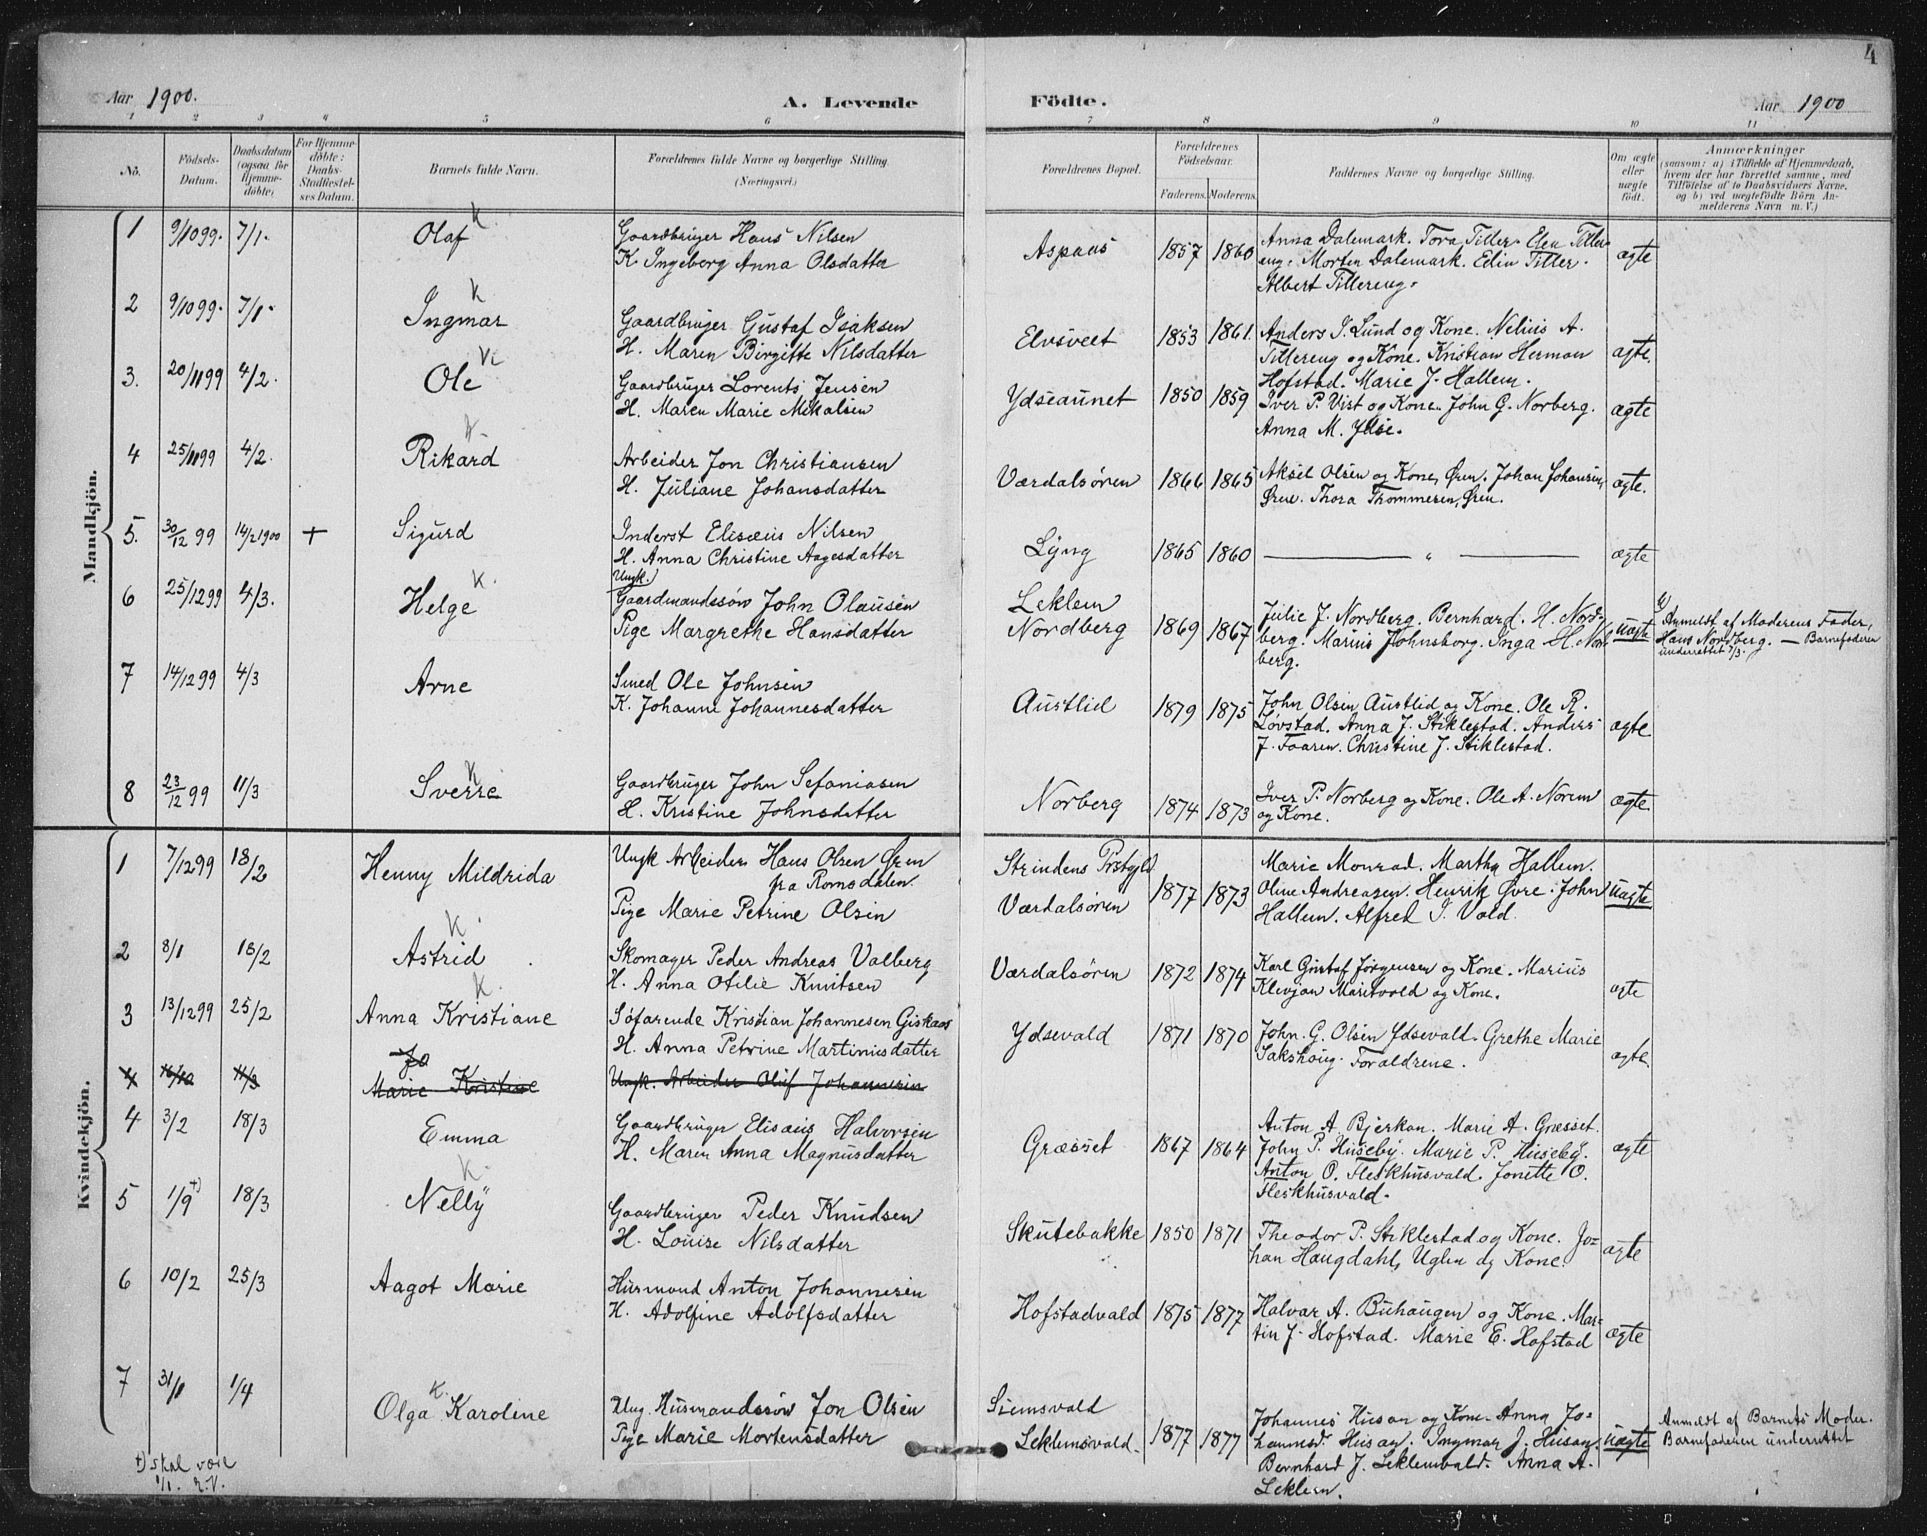 4
Aar 1900.
A. Levende
Födte.
Aar 1900
1 2 3 4 5 6 7 8 9 10 11
No.
Födsels-
Datum.
Daabsdatum
(ogsaa for
Hjemme-
döbte)
For Hjemme-
döbte:
Daabs-
Stadfæstel-
ses Datum.
Barnets fulde Navn.
Forældrenes fulde Navne og borgerlige Stilling.
(Næringsvei.)
Forældrenes Bopæl.
Forældrenes
Födselsaar.
Faderens. Moderens.
Faddernes Navne og borgerlige Stilling.
Om ægte
eller
uægte
födt.
Anmærkninger
(saasom: a) i Tilfælde af Hjemmedaab,
hvem der har forrettet samme, med
Tilföielse af to Daabsvidners Navne,
og b) ved uægtefödte Börn An-
melderens Navn m. V.)
Mandkjön.
1 9/10 99. 7/1. Olaf K
Gaardbruger Hans Nilsen
K. Ingeborg Anna Olsdatter
Aspaas 1857 1860
Anna Dalemark. Tora Tiller. Elen Tiller-
eng. Morten Dalemark. Edin Tiller.
Albert Tillereng.
ægte
2 9/10 99. 7/1. Ingmar K
Gaardbruger Gustaf Isaksen
H. Maren Birgitte Nilsdatter
Elvsveet 1853 1861.
Anders J. Lund og Kone. Nelius A.
Tillereng og Kone. Kristian Herman
Hofstad. Marie J. Hallem.
ægte.
3. 20/11 99 4/2. Ole K
Gaardbruger Lorents Jensen
H. Maren Marie Mikalsen
Ydseaunet 1850 1859
Iver P. Vist og Kone. John G. Norberg.
Anna M. Ydse.
ægte
4 25/11 99 4/2. Rikard K.
Arbeider Jon Christiansen
H. Juliane Johansdatter
Værdalsøren 1866 1865
Aksel Olsen og Kone, Øren. Johan Johansen,
Øren. Thora Thommesen, Øren.
ægte.
5. 30/12 99 14/2 1900 + Sigurd
Inderst Elisæus Nilsen
H. Anna Christine Aagesdatter
Lyng 1865 1860
— " —
ægte
6 25/12 99 4/3. Helge K.
Ungk.
Gaardmandssøn John Olausen
Pige Margrethe Hansdatter
Leklem
Nordberg 1869 1867
Julie J. Nordberg. Bernhard. H. Nord-
berg. Marius Johnsborg. Inga H. Nord-
berg.
uægte
Anmeldt af Moderens Fader,
Hans Nordberg. — Barnefaderen
underrettet 7/3.
7 14/12 99 4/3 Arne
Smed Ole Johnsen
K. Johanne Johannesdatter
Austlid 1879 1875
John Olsen Austlid og Kone. Ole R.
Løvstad. Anna J. Stiklestad. Anders
J. Faaren. Christine J. Stiklestad.
ægte
8 23/12 99 11/3 Sverre K
Gaardbruger John Sefaniasen
H. Kristine Johnsdatter
Norberg 1874 1873
Iver P. Norberg og Kone. Ole A. Norem
og Kone.
ægte
Kvindekjön.
1 7/12 99 18/2 Henny Mildrida
Ungk Arbeider Hans Olsen Øren
fra Romsdalen.
Pige Marie Petrine Olsen
Strindens Prstgjld
Værdalsøren 1877 1873
Marie Monrad. Martha Hallem.
Oline Andreasen. Henrik Øvre. John
Hallem. Alfred I. Vold.
uægte
2 8/1 18/2 Astrid K.
Skomager Peder Andreas Valberg
H. Anna Otilie Knutsen
Værdalsøren 1872 1874
Karl Gustaf Jørgensen og Kone. Marius
Klevjan Maritvold og Kone.
ægte
3 13/12 99 25/2 Anna Kristiane K.
Søfarende Kristian Johannesen Giskaas
H. Anna Petrine Martinusdatter
Ydsevald 1871 1870
John. G. Olsen Ydsevald. Grethe Marie
Sakshoug. Forældrene.
ægte.
4 11/3 Jo
Marie Kristine
Ungk. Arbeider Oluf Johannesen
4 3/2 18/3 Emma
Gaardbruger Elisæus Halvorsen
H. Maren Anna Magnusdatter
Græsset 1867 1864
Anton A. Bjerkan. Marie A. Græsset.
John P. Huseby. Marie P. Huseby.
Anton O. Fleskhusvald. Jonette O.
Fleskhusvald.
ægte
5 1/9 †) 18/3 Nelly K.
Gaardbruger Peder Knudsen
H. Louise Nilsdatter
Skutebakke 1850 1871
Theodor P. Stiklestad og Kone. Jo-
han Haugdahl, Uglen og Kone.
ægte
6 10/2 25/3 Aagot Marie
Husmand Anton Johannesen
H. Adolfine Adolfsdatter
Hofstadvald 1875 1877
Halvar A. Buhaugen og Kone. Mar-
tin J. Hofstad. Marie E. Hofstad
ægte
7 31/1 1/4 Olga Karoline K.
Ung. Husmandssøn Jon Olsen
Pige Marie Mortensdatter
Siemsvald
Leklemsvald. 1877 1877
Johannes Husan og Kone. Anna Jo-
hannesd. Husan. Ingmar J. Husan.
Bernhard J. Leklemvald. Anna A.
Leklem.
uægte
Anmeldt af Barnets Moder.
Barnefaderen underrettet
†) skal være
1/1. R.V.